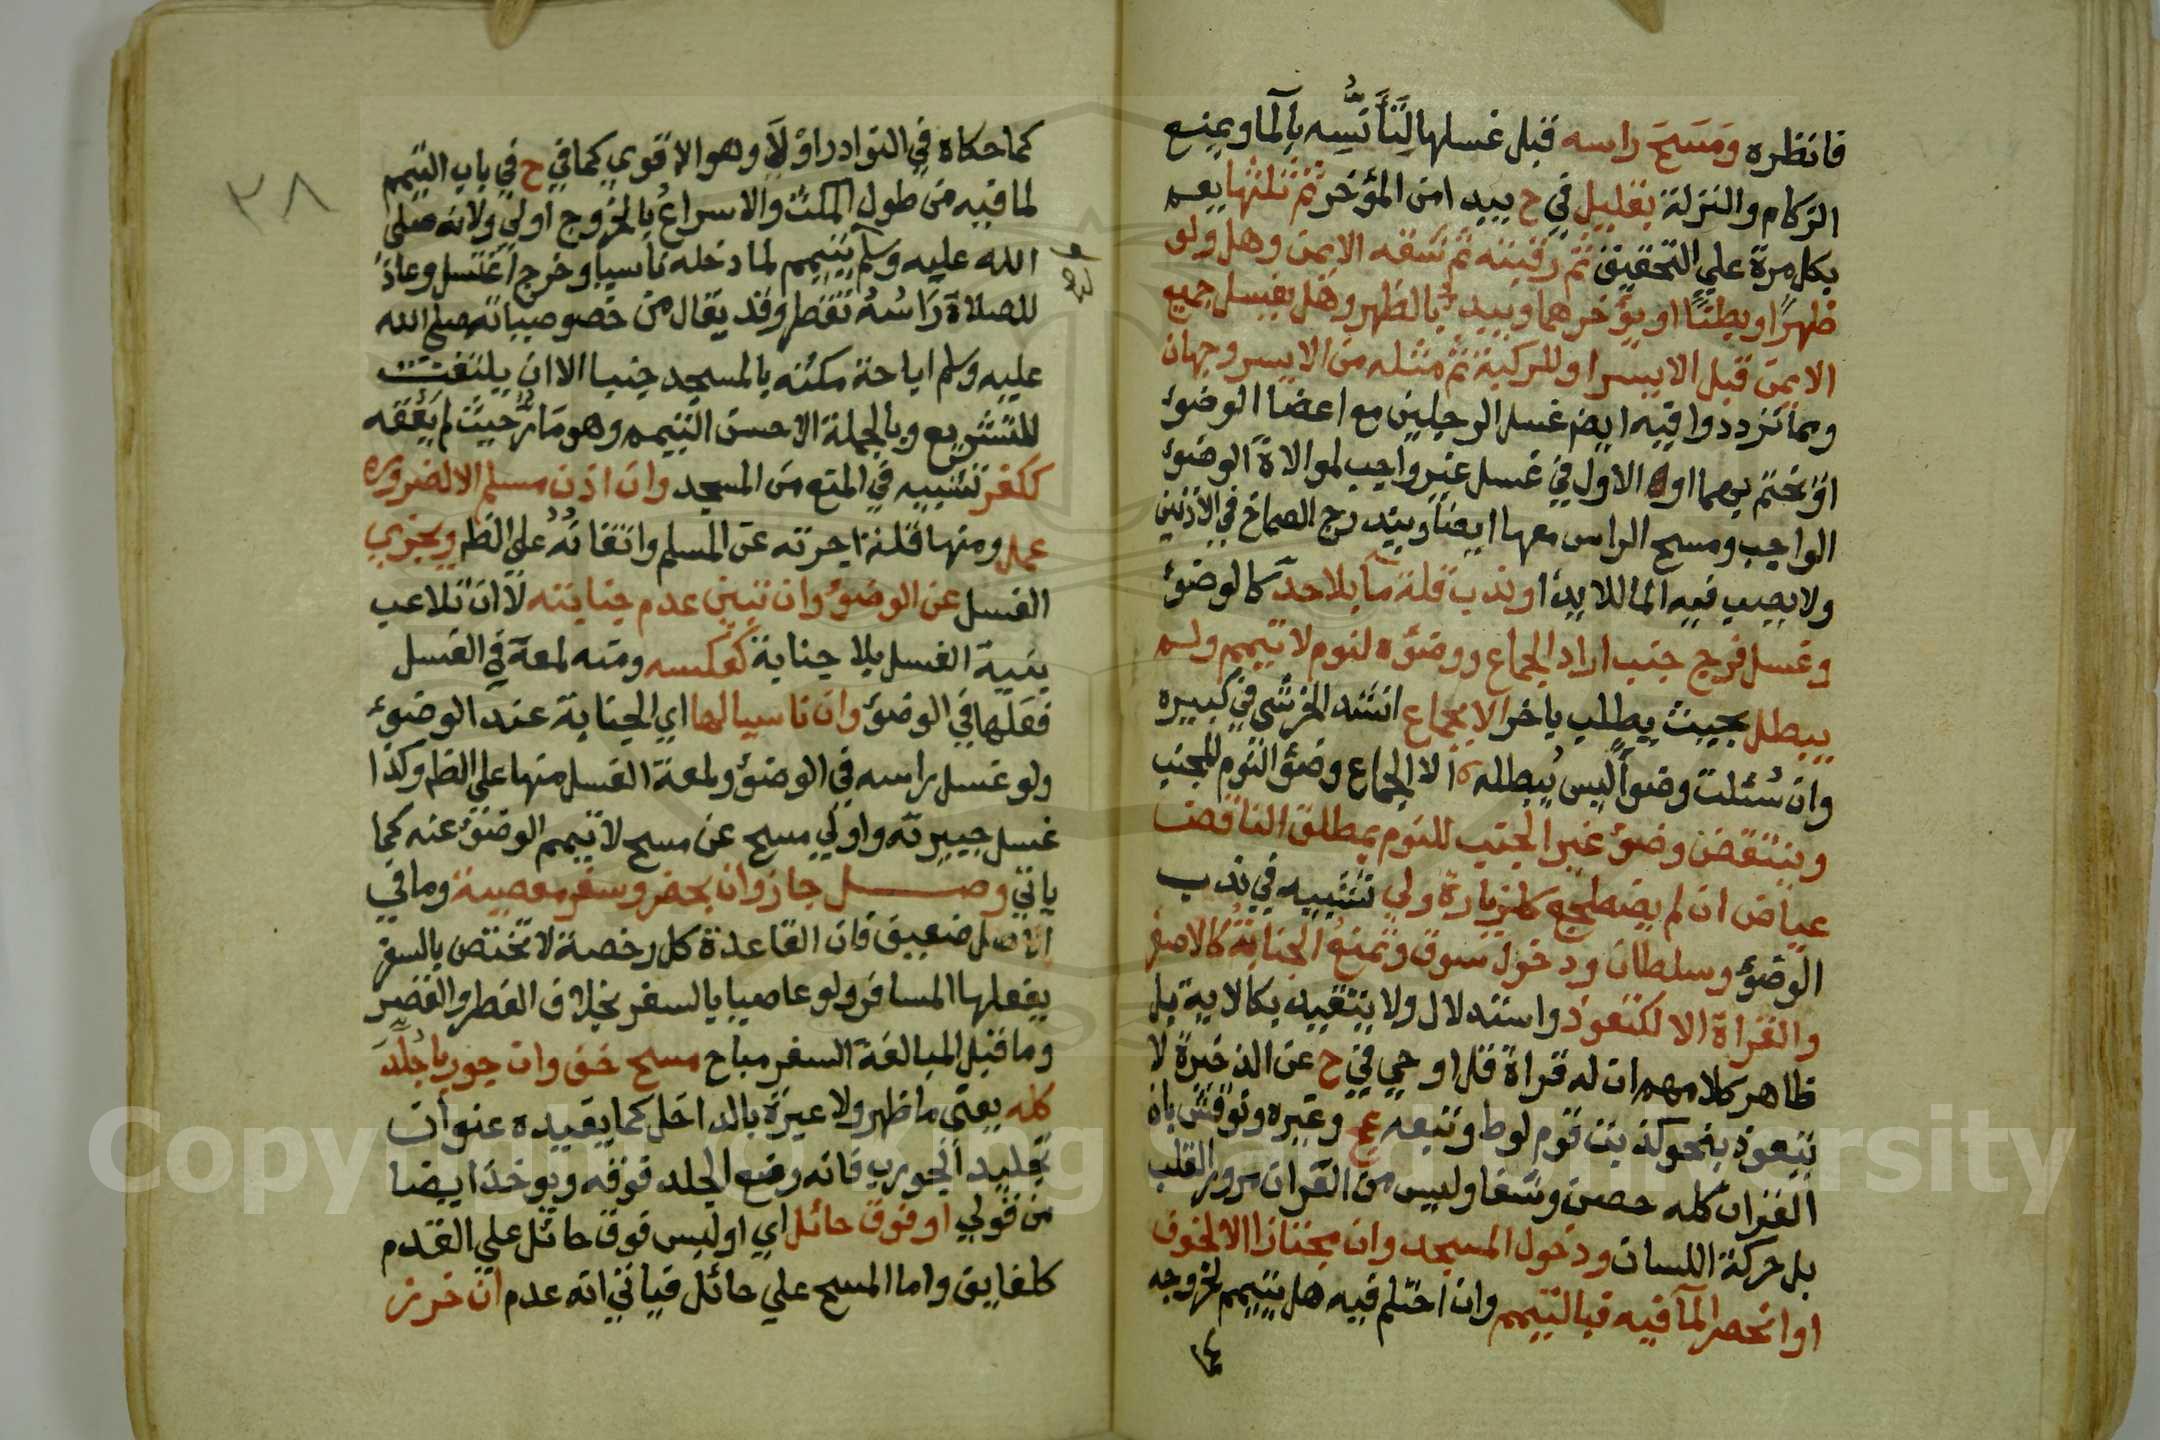 فانظره ومسح راسه قبل غسلها لتأنسه بالما ويمنع
الزكام والنزلة بقليل في ح يبيد امن المؤخر ثم تثلثها يعم
بكل مرة علي التحقيق ثم رقبته ثم شقه الايمن وهل ولو
ظهرا وبطنا او يؤخرهما ويبدا بالظهر وهل يغسل جميع
الايمن قبل الايسر او للركبة ثم مثله من الايسر وجهان
ومما تردد وا فيه ايض غسل الرجلين مع اعضا الوضوء
او تختم بهما او الاول في غسل غير واجب لموالاة الوضوء
الواجب ومسح الراس معها ايضا ويندرج الصماخ في الاذنين
ولا يصيب فيه الما للايذا وندب قلة ما بلا حد كالوضوء
وغسل فرج جنب اراد الجماع ووضوه لنوم لا تيمم ولم
يبطل بحيث يطلب باخر الا بجماع انشد الخرشي في كبيره
وان سئلت وضوأ ليس يبطله الا الجماع وضوء النوم للجنب
وينتقض وضوء غير الجنب للنوم بمطلق الناقض
عياض ان لم يضطجع كلزيارة ولي تنبيه في ندب
الوضوء وسلطان ودخول سوق وتمنع الجنابة كالاصغر
والقراة الا لكتعوذ واستدلال ولا يتقيد بكالاية بل
ظاهر كلامهم ان له قراة قل اوحي في ح عن الذخيرة لا
يتعوذ بنحو كذبت قوم لوط وتبعه عج وغيره وتوقش بان
القران كله حصن وشفا وليس من القران مرور القلب
بل حركة اللسان ودخول المسجد وان مجتازا الا لخوف
او انحصر المآ فيه فبالتيمم وان احتلم فيه هل يتيمم لخروجه
كما
٣٨
كما حكاه في النوادر اولا وهو الاقوي كما في ح في باب التيمم
لما فيه من طول المكث والاسراع بالخروج اولي ولانه صلى
الله عليه وسلم لم يتيمم لما دخله ناسيا وخرج اغتسل وعاد
للصلاة راسه تقطر وقد يقال من خصوصياته صلي الله
عليه وسلم اباحة مكثه بالمسجد جنبا الا ان يلتفت
للتشريع وبالجملة الاحسن التيمم وهو مار حيث لم يعقه
ككفر تنبيه في المنع من المسجد وان اذن مسلم الا لضرورة
عمل ومنها قلة اجرته عن المسلم واتقانه علي الظ ويجزي
الغسل عن الوضوء وان تبين عدم جنابته لا ان تلاعب
بنية الغسل بلا جنابة كعكسه ومنه لمعة في الغسل
فعلها في الوضوء وان ناسيا لها اي الجنابة عند الوضوء
ولو غسل راسه في الوضوء ولمعة الغسل منها علي الظ وكذا
غسل جبيرته واولي مسح عن مسح لا تيمم الوضوء عنه كما
ياتي وصل جاز وان بحضر وسفر معصية وما في
الاصل ضعيف فان القاعدة كل رخصة لا تختص بالسفر
يفعلها المسافر ولو عاصيا بالسفر بخلاف الفطر والقصر
وما قبل المبالغة السفر مباح مسح خف وان جوربا جلد
كله يعني ما ظهر ولا عبرة بالداخل كما يفيده عنوان
تجليد الجورب فانه وضع الجلد فوقه ويوخذ ايضا
من قولي او فوق حائل اي او لبس فوق حائل علي القدم
كلفايف واما المسح علي حائل فياتي انه عدم ان خرز